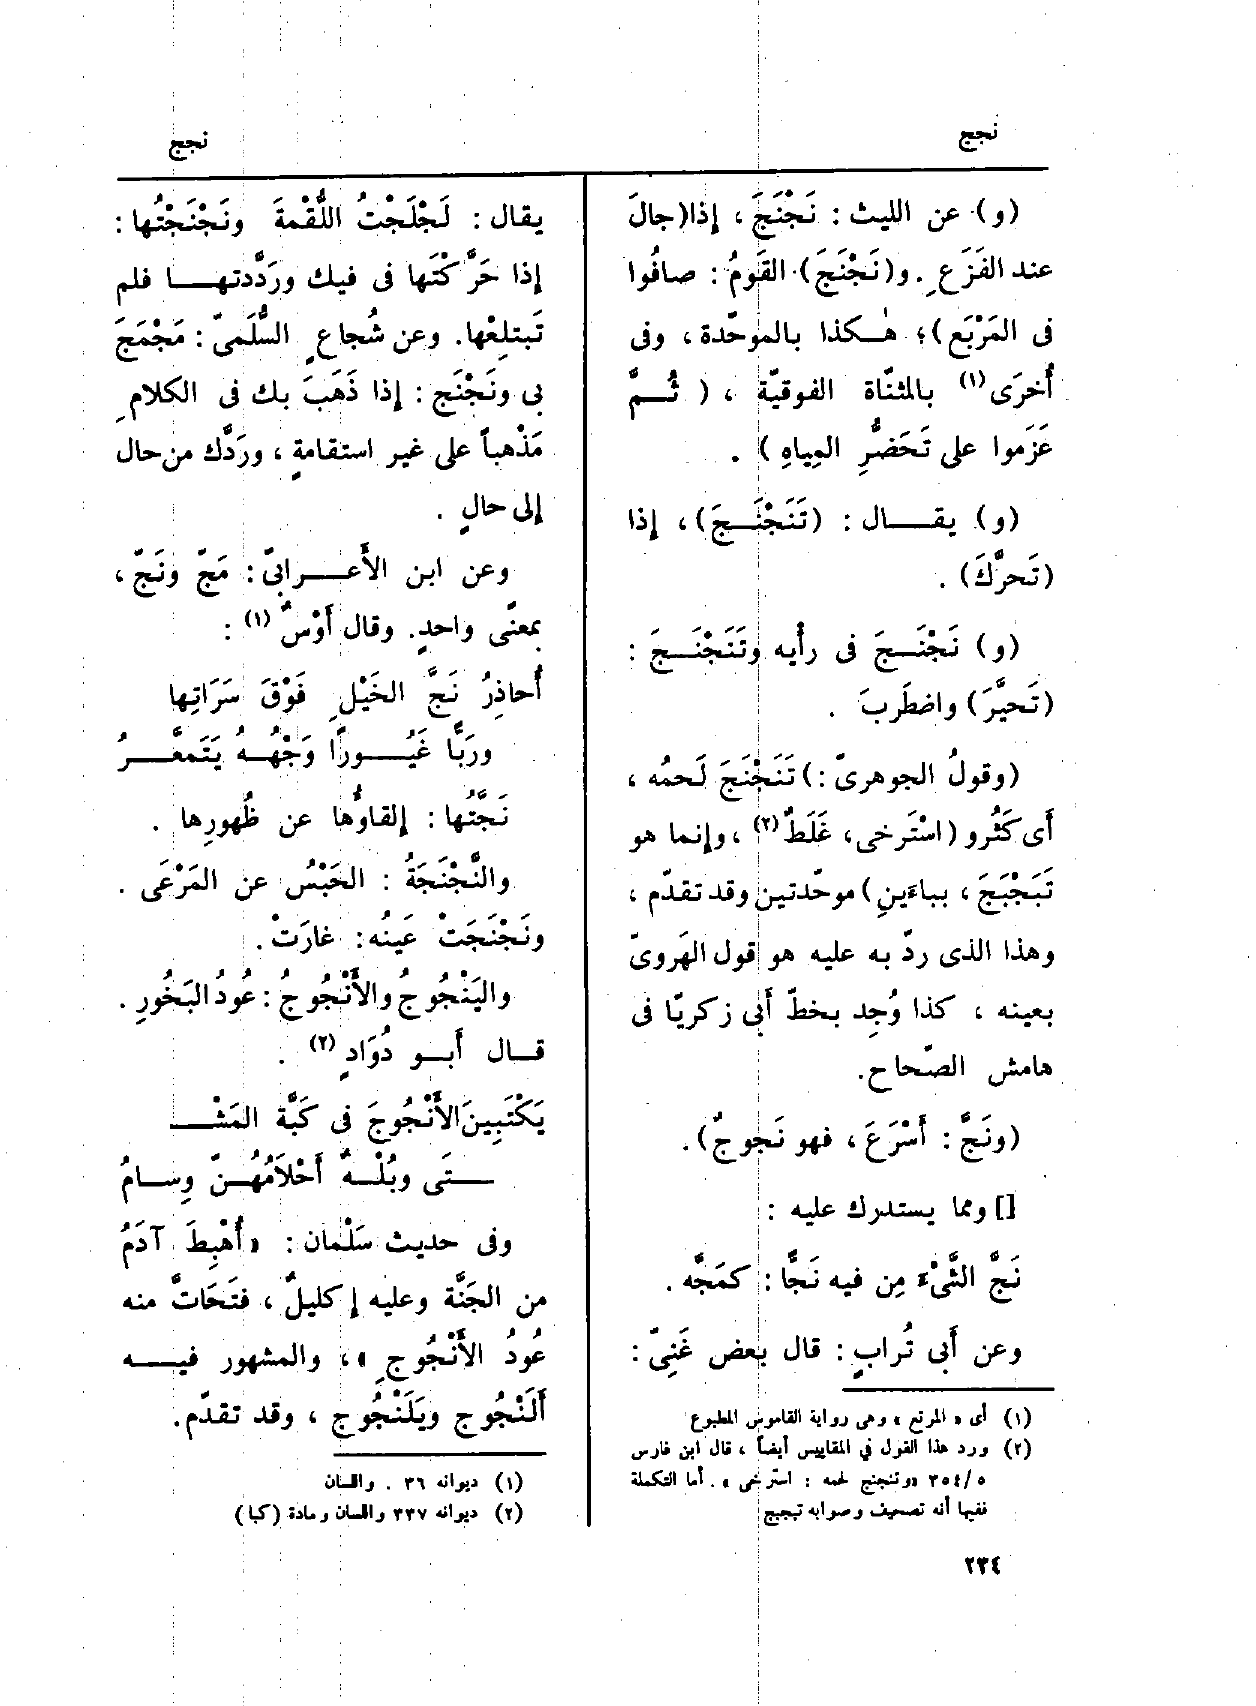 نجج
نجج
(و) عن الليث : نَجْنَجَ ، إذا (جالَ
عند الفَزَعِ . و(نَجْنَجَ) القَومُ : صافُوا
فى المَرْبَع) ؛ هٰكذا بالموحّدة ، وفى
أُخرَى (١) بالمثنّاة الفوقيّة ، ( ثُمَّ
عَزَموا على تَحَضُّرِ المِياهِ ) .
(و) يقال : (تَنَجْنَجَ) ، إذا
(تَحرَّكَ) .
(و) نَجْنَجَ فى رأْيه وتَنَجْنَجَ :
(تَحيَّرَ) واضطَربَ .
(وقولُ الجوهرىّ :) تَنَجْنَجَ لَحمُه ،
أَى كَثُر و (اسْتَرخى ، غَلَطٌ (٢) ، وإنما هو
تَبَجْبَجَ ، بباءَينِ) موحّدتين وقد تقدّم ،
وهذا الذى ردّ به عليه هو قول الهَروىّ
بعينه ، كذا وُجِد بخطّ أَبى زكريّا فى
هامش الصّحاح.
(ونَجَّ : أَسْرَعَ ، فهو نَجوجٌ) .
[] ومما يستدرك عليه :
نَجَّ الشَّىْءَ مِن فيه نَجًّا : كمَجَّه .
وعن أَبى تُرابٍ : قال بعض غَنِىّ :
(١) أى « المرتع » وهى رواية القاموس المطبوع
(٢) ورد هذا القول في المقاييس أيضاً ، قال ابن فارس
٥/٣٥٤ «وتنجنج لحمه : استرخى » . أما التكملة
ففيها أنه تصحيف وصوابه تبجبج
٢٣٤
يقال : لَجْلَجْتُ اللُّقْمةَ ونَجْنَجْتُها :
إذا حَرَّكْتَها فى فيك وردَّدتها فلم
تَبتلِعْها. وعن شُجاعٍ السُّلَمىّ : مَجْمَجَ
بى ونَجْنَج : إذا ذَهَبَ بك فى الكلامِ
مَذْهباً على غير استقامةٍ ، وردَّك من حال
إلى حالٍ .
وعن ابن الأَعرابىّ : مَجّ ونَجّ ،
بمعنًى واحدٍ. وقال أَوْسٌ (١) :
أُحاذِرُ نَجَّ الخَيْلِ فَوْقَ سَرَاتِها
ورَبًّا غَيُورًا وَجْهُهُ يَتَمعَّرُ
نَجَّتُها : إلقاؤُها عن ظُهورِها .
والنَّجْنَجَةُ : الحَبْسُ عن المَرْعَى .
ونَجْنَجَتْ عَينُه : غارَتْ .
واليَنْجُوجُ والأَنْجُوجُ : عُودُ البَخُورِ .
قال أَبو دُوَادٍ (٢) .
يَكْتَبِينَ الأَنْجُوجَ فى كَبَّة المَشْـ
ـتَى وبُلْهٌ أَحْلاَمُهُنّ وِسامُ
وفى حديث سَلْمان : « أُهْبِطَ آدَمُ
من الجَنَّة وعليه إكليلٌ ، فتَحَاتَّ منه
عُودُ الأَنْجُوجِ » ، والمشهور فيه
أَلَنْجُوج ويَلَنْجُوج ، وقد تقدّم.
(١) ديوانه ٣٦ . واللسان
(٢) ديوانه ٣٣٧ واللسان ومادة (كبا)